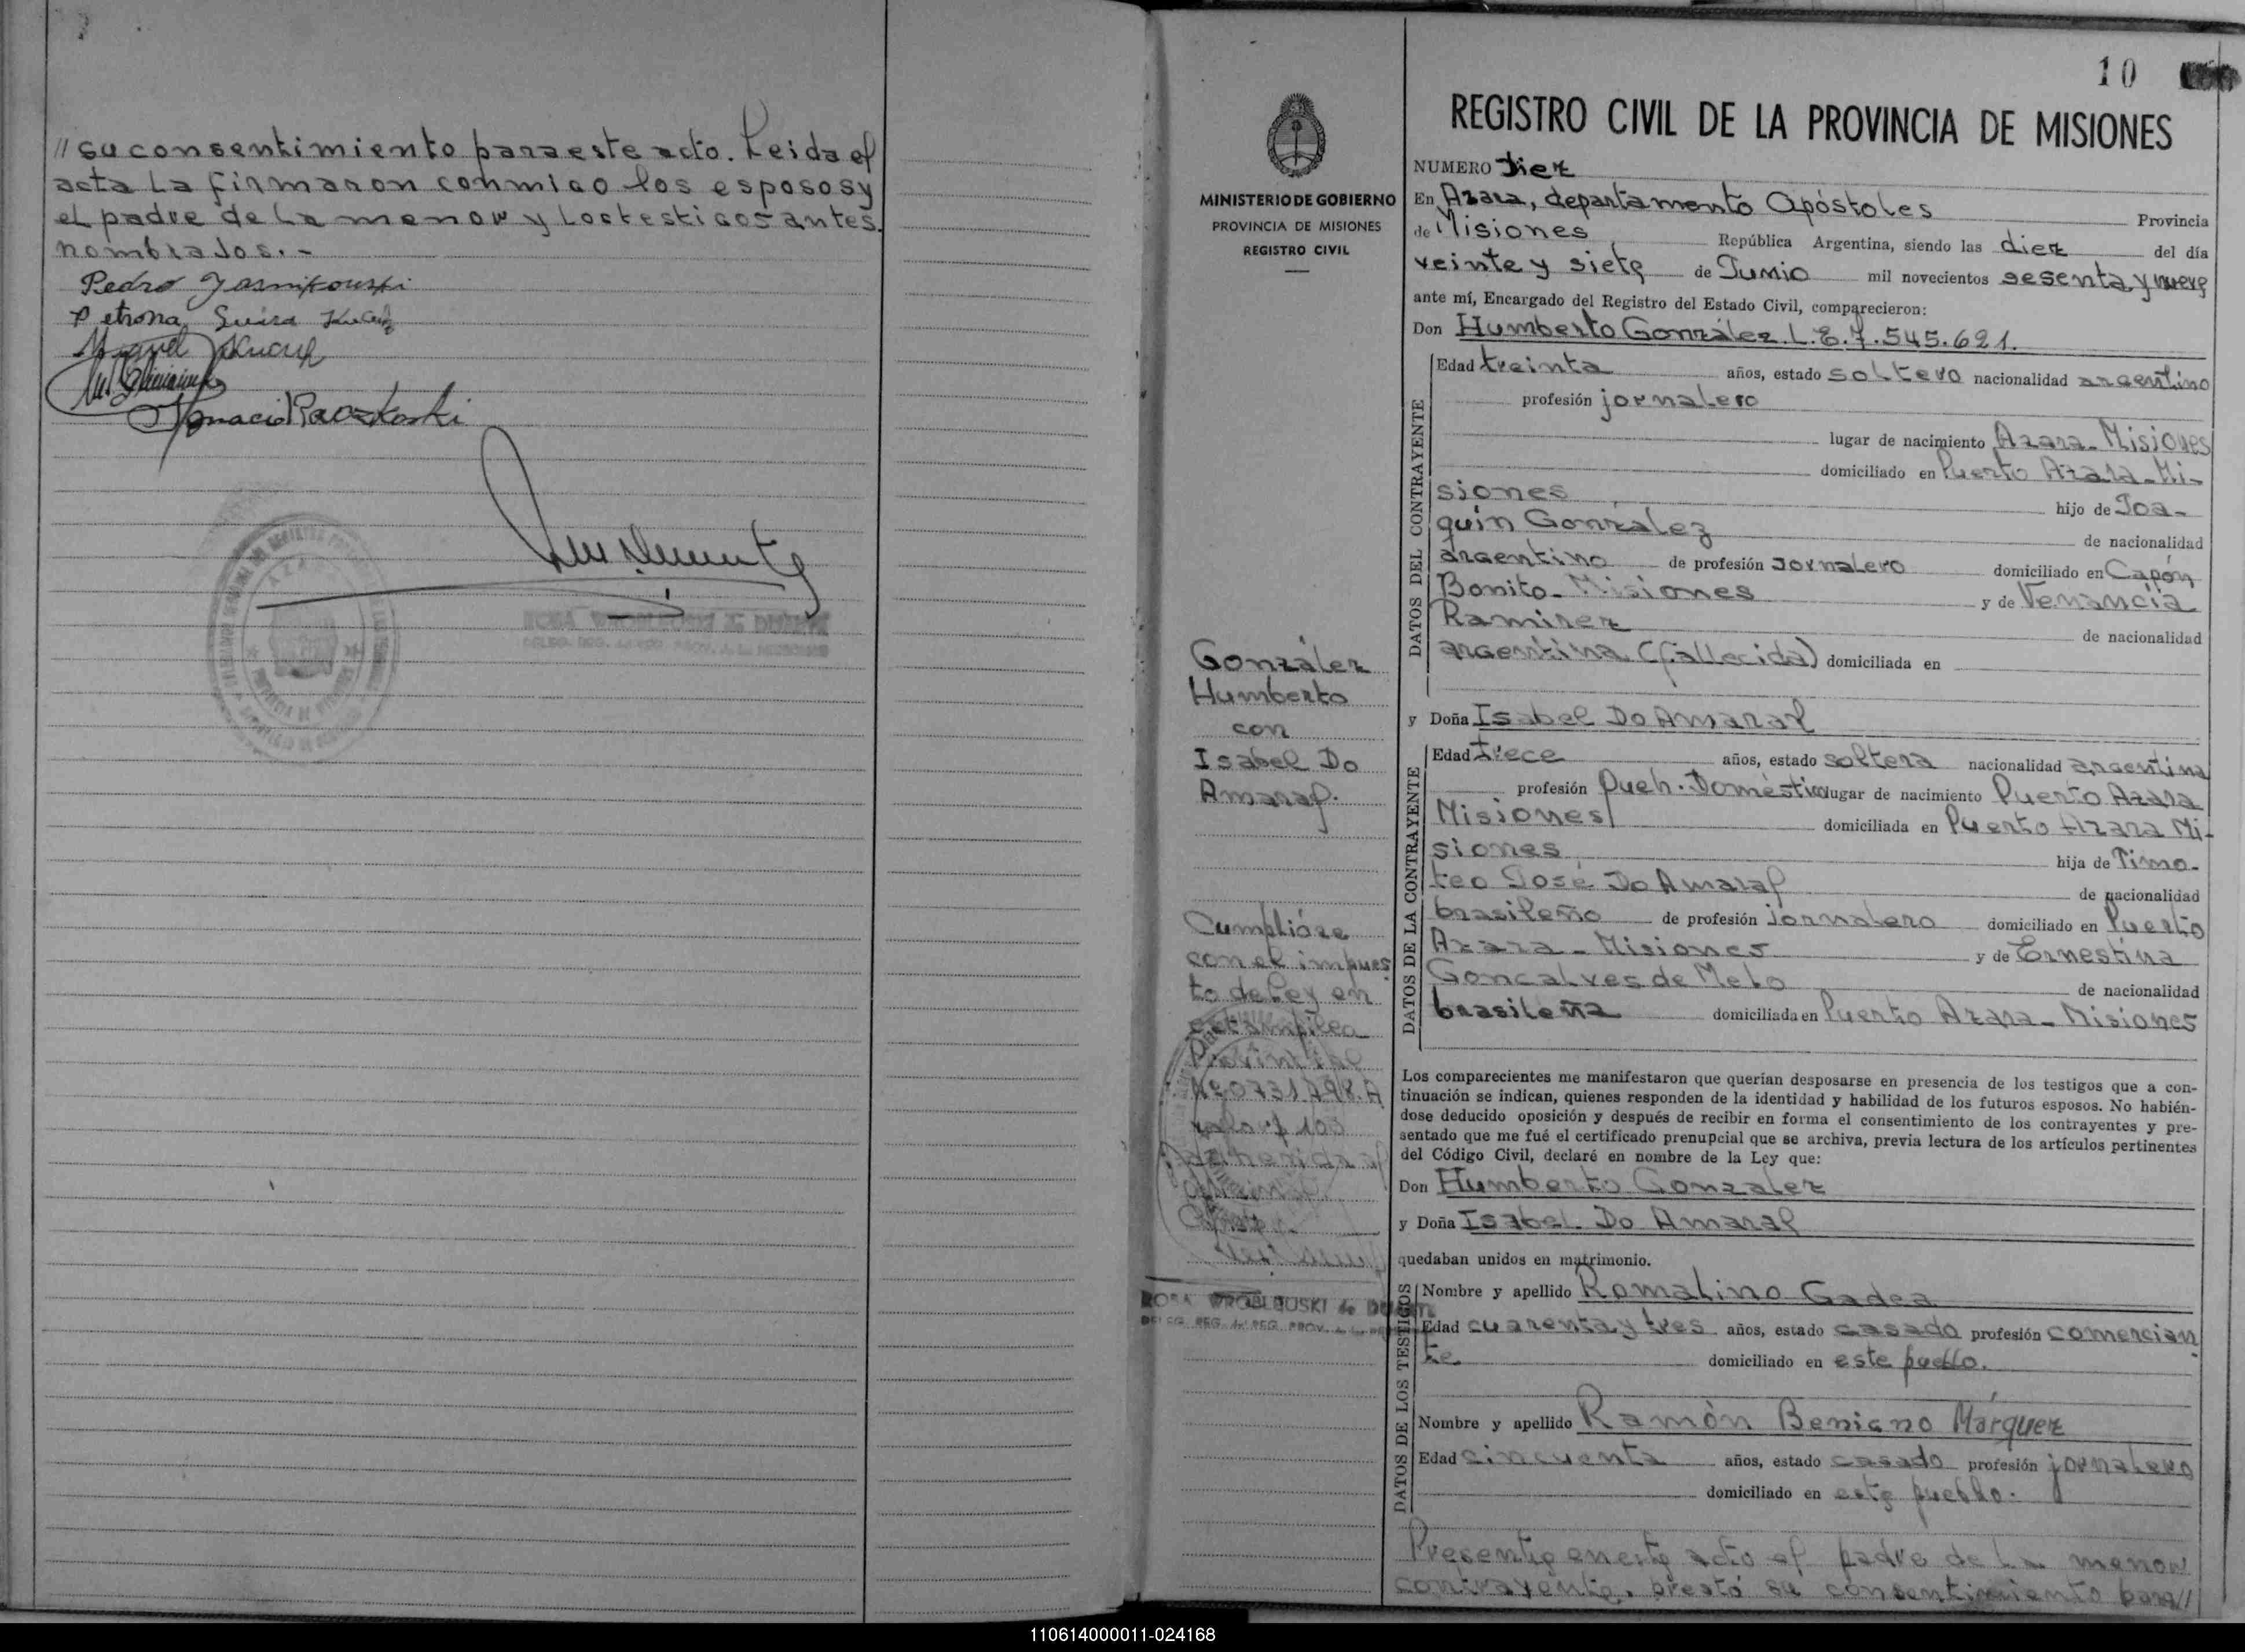 // su consentimiento para este acto. Leida el
acta la firmaron conmigo los esposos y
el padre de la menor y los testigos antes
nombrados.-
Pedro Jasnikouski
Petrona Luisa
Miguel
Ignacio Raczkoski
10
REGISTRO CIVIL DE LA PROVINCIA DE MISIONES
MINISTERIO DE GOBIERNO
PROVINCIA DE MISIONES
REGISTRO CIVIL
NUMERO Diez
En Azara, departamento Apóstoles Provincia
de Misiones República Argentina, siendo las diez del día
veinte y siete de Junio mil novecientos sesenta y nueve
ante mí, Encargado del Registro del Estado Civil, comparecieron:
Don Humberto González. L.E.7.545.621.
DATOS DEL CONTRAYENTE
Edad treinta años, estado soltero nacionalidad argentino
profesión jornalero
lugar de nacimiento Azara-Misiones
domiciliado en Puerto Azara-Mi-
siones hijo de Joa-
quin González de nacionalidad
argentino de profesión jornalero domiciliado en Capón
Bonito-Misiones y de Venancia
Ramirez de nacionalidad
argentina (fallecida) domiciliada en
y Doña Isabel Do Amaral
DATOS DE LA CONTRAYENTE
Edad trece años, estado soltera nacionalidad argentina
profesión Queh. Doméstico lugar de nacimiento Puerto Azara
Misiones domiciliada en Puerto Azara Mi-
siones hija de Timo-
teo José Do Amaral de nacionalidad
brasileño de profesión jornalero domiciliado en Puerto
Azara-Misiones y de Ernestina
Goncalves de Melo de nacionalidad
brasileña domiciliada en Puerto Azara-Misiones
González
Humberto
con
Isabel Do
Amaral.
Cumplióse
con el impues
to de ley en
estampilla
Provincial
Nº 0731798.A
valor $ 103
adherida al
ROSA WROBLEUSKI de
Los comparecientes me manifestaron que querían desposarse en presencia de los testigos que a con-
tinuación se indican, quienes responden de la identidad y habilidad de los futuros esposos. No habién-
dose deducido oposición y después de recibir en forma el consentimiento de los contrayentes y pre-
sentado que me fué el certificado prenupcial que se archiva, previa lectura de los artículos pertinentes
del Código Civil, declaré en nombre de la Ley que:
Don Humberto Gonzalez
y Doña Isabel Do Amaral
quedaban unidos en matrimonio.
DATOS DE LOS TESTIGOS
Nombre y apellido Romalino Gadea
Edad cuarenta y tres años, estado casado profesión comercian
te domiciliado en este pueblo.
Nombre y apellido Ramón Benigno Márquez
Edad cincuenta años, estado casado profesión jornalero
domiciliado en este pueblo.
Presente en este acto el padre de la menor
contrayente, prestó su consentimiento para//
110614000011-024168